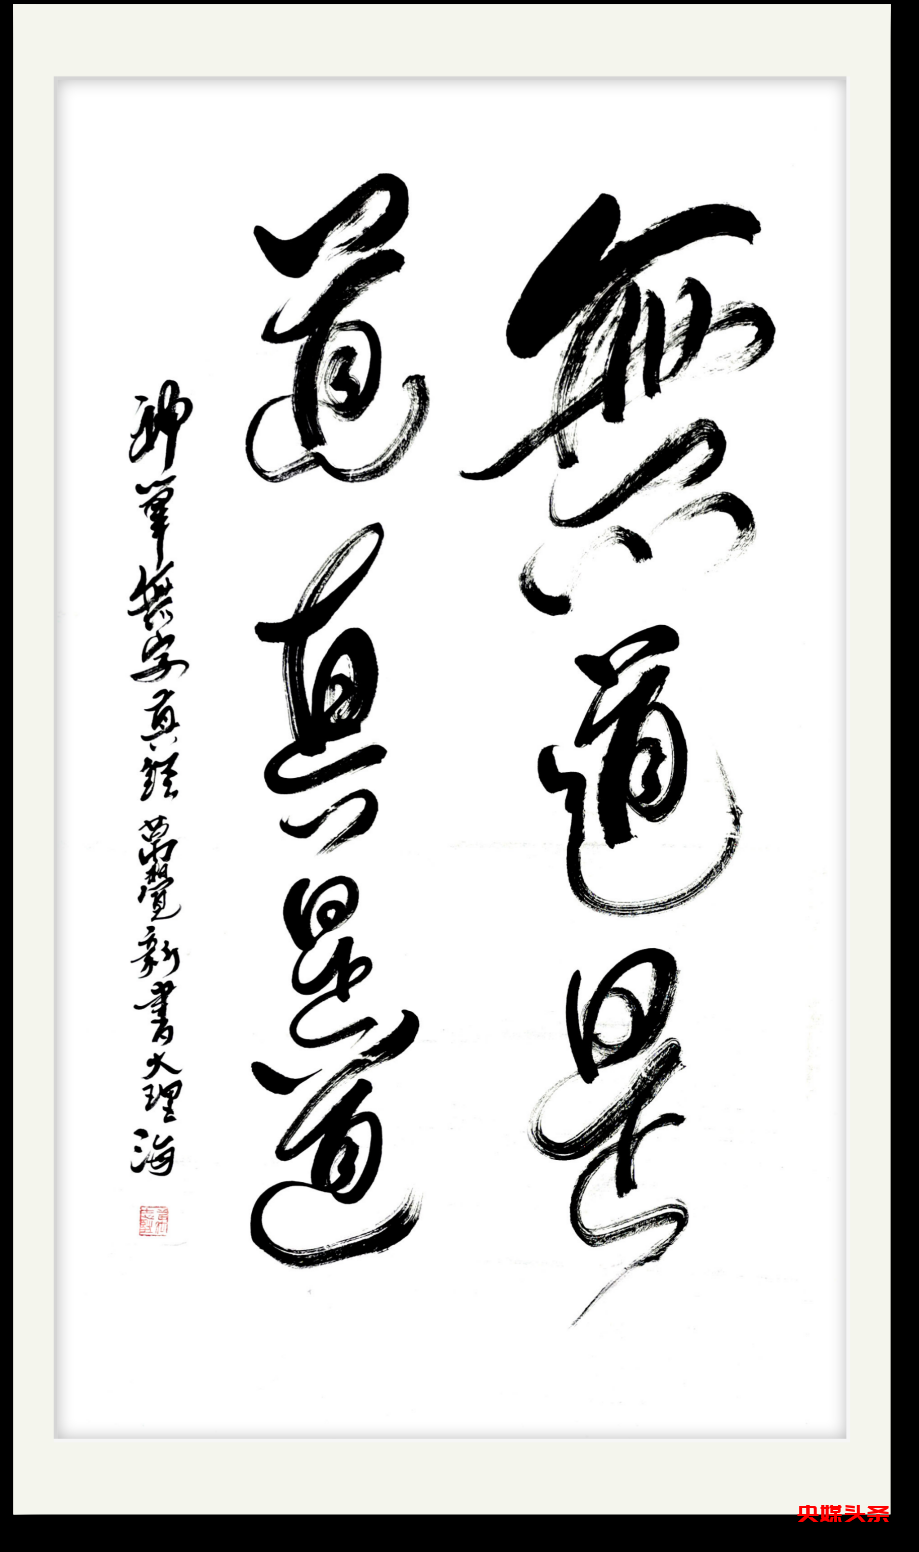 無道是
道真是道
神筆無字真经 萬覺新書大理海
央媒头条